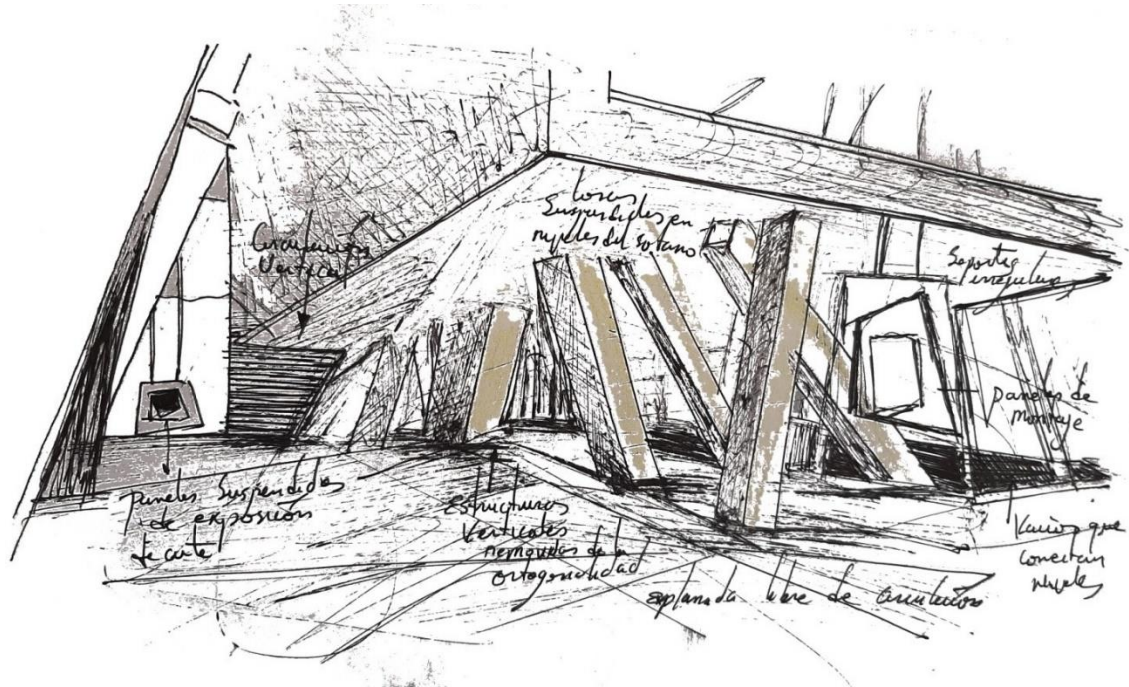 Circulación
Vertical
Losas
Suspendidas en
niveles del sotano
Soportes
irregulares
paneles de
montaje
paneles suspendidos
de exposición
de arte
estructuras
Verticales
removidas de la
ortogonalidad
esplanada libre de circulación
Vacios que
conectan
niveles